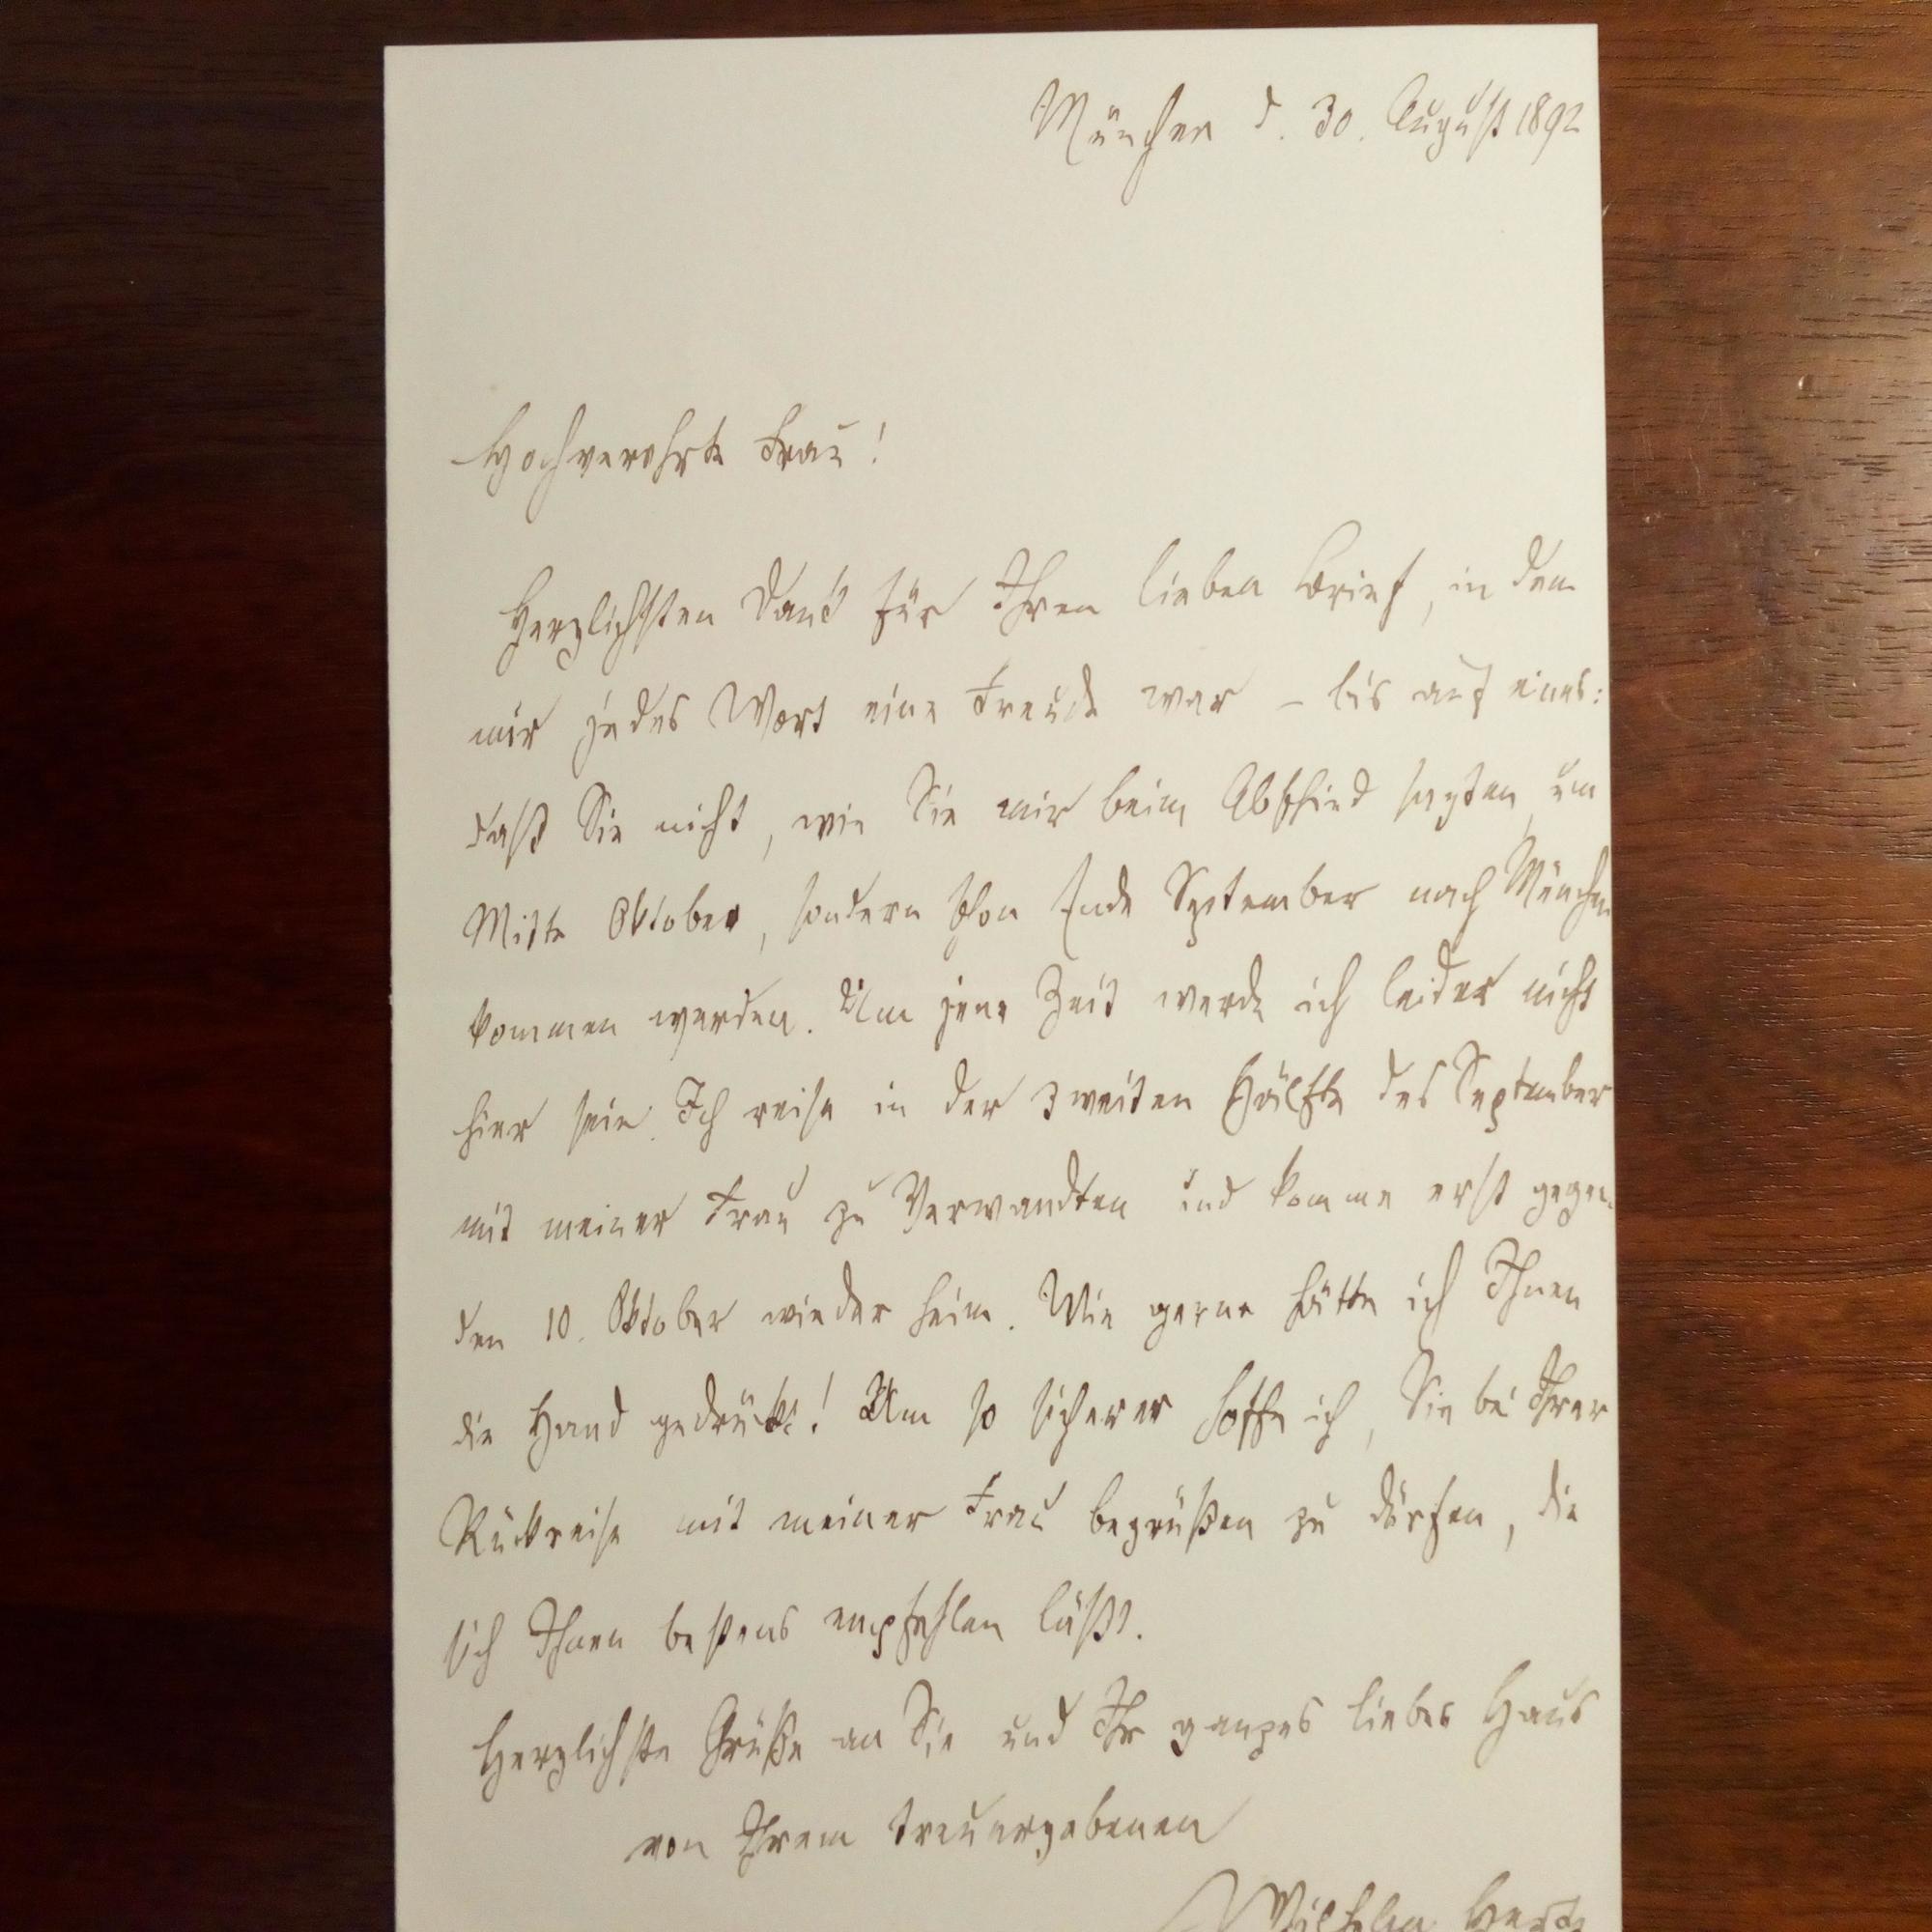 München d. 30. August 1892
Hochverehrte Frau!
Herzlichsten Dank für Ihren lieben Brief, in dem
mir jedes Wort eine Freude war – bis auf eines:
daß Sie nicht, wie Sie mir beim Abschied sagten, um
Mitte Oktober, sondern schon Ende September nach München
kommen werden. Um jene Zeit werde ich leider nicht
hier sein. Ich reise in der zweiten Hälfte des September
mit meiner Frau zu Verwandten und komme erst gegen
den 10. Oktober wieder heim. Wie gerne hätte ich Ihnen
die Hand gedrückt! Um so sicherer hoffe ich, Sie bei Ihrer
Rückreise mit meiner Frau begrüßen zu dürfen, die
sich Ihnen bestens empfehlen läßt.
Herzlichste Grüße an Sie und Ihr ganzes liebes Haus
von Ihrem treuergebenen
Wilhelm Hertz